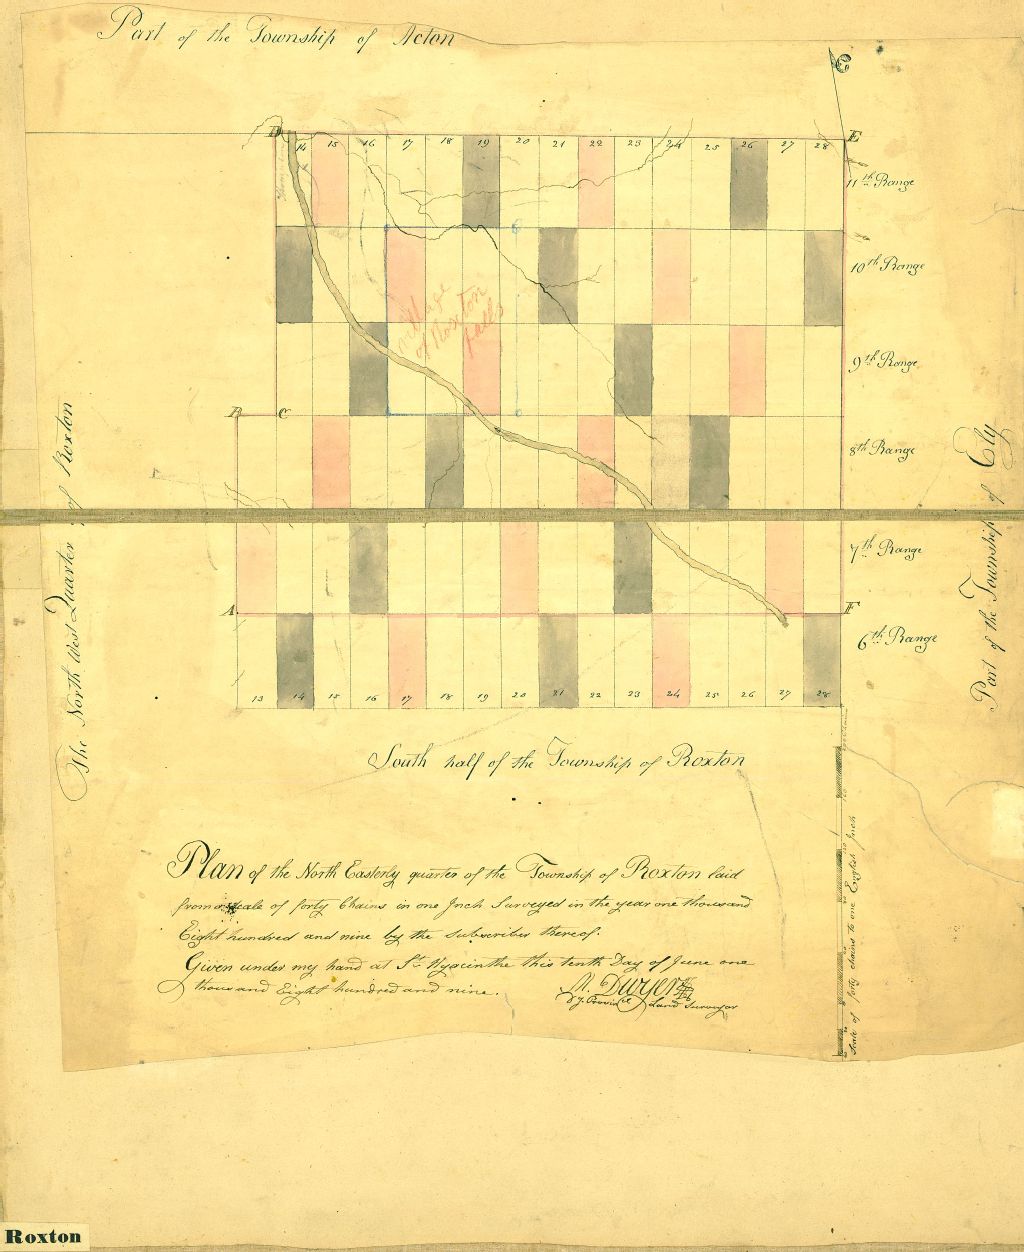 Part of the Township of Acton
D
E
14 15 16 17 18 19 20 21 22 23 24 25 26 27 28
11th Range
10th Range
Village
of Roxton
falls
9th Range
B
C
8th Range
7th Range
A
F
6th Range
13 14 15 16 17 18 19 20 21 22 23 24 25 26 27 28
The North West Quarter of Roxton
Part of the Township of Ely
South half of the Township of Roxton
Plan of the North Easterly quarter of the Township of Roxton laid
from a scale of forty Chains in one Inch Surveyed in the year one thousand
Eight hundred and nine by the Subscriber thereof.
Given under my hand at St. Hyacinthe this tenth Day of June one
thousand Eight hundred and nine.
Dwyer
Dy. Provine. Land Surveyor
Scale of forty chains to one English Inch
Roxton